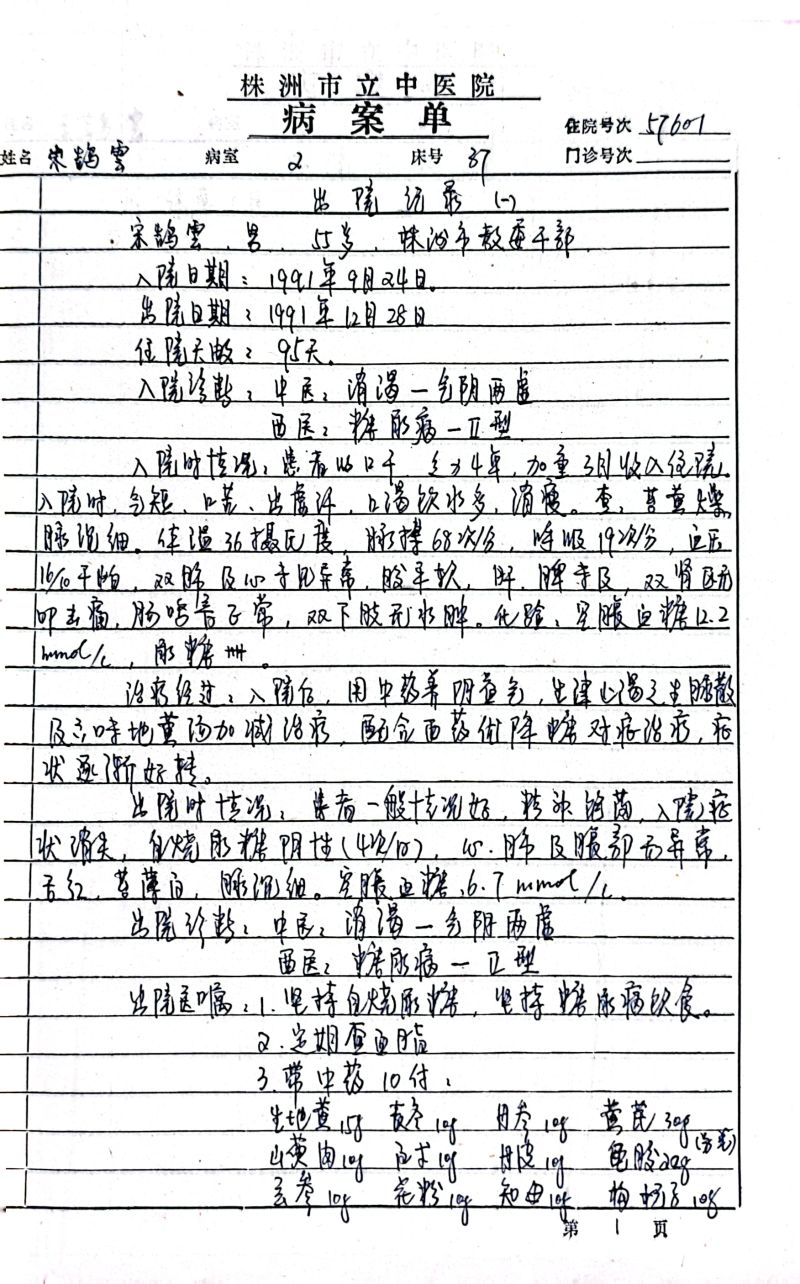 株洲市立中医院
病案单
住院号次 57601
姓名 宋鹄雲 病室 2 床号 37 门诊号次
出院记录(一)
宋鹄雲,男,55岁,株洲市教委干部
入院日期:1991年9月24日。
出院日期:1991年12月28日
住院天数:95天。
入院诊断:中医:消渴—气阴两虚
西医:糖尿病—Ⅱ型
入院时情况:患者以口干,乏力4年,加重3月收入住院。
入院时,气短、口苦、出虚汗,口渴饮水多,消瘦。查:苔黄燥
脉沉细。体温36摄氏度,脉搏68次/分,呼吸19次/分,血压
16/10千帕,双肺及心未见异常,腹平软,肝、脾未及,双肾区无
叩击痛,肠鸣音正常,双下肢无水肿。化验:空腹血糖12.2
mmol/L,尿糖卌。
治疗经过:入院后,用中药养阴益气,生津止渴之生脉散
及六味地黄汤加减治疗,配合西药优降糖对症治疗,症
状逐渐好转。
出院时情况:患者一般情况好,精神,入院症
状消失,自烧尿糖阴性(4次/日),心、肺及腹部无异常,
舌红,苔薄白,脉沉细。空腹血糖:6.7mmol/L。
出院诊断:中医:消渴—气阴两虚
西医:糖尿病—Ⅱ型
出院医嘱:1.坚持自烧尿糖,坚持糖尿病饮食。
2.定期查血脂
3.带中药10付:
生地黄15g 10g 丹参10g 黄芪30g
山萸肉10g 白术10g 丹皮10g 龟胶20g
玄参10g 花粉10g 知母10g 10g
第 1 页